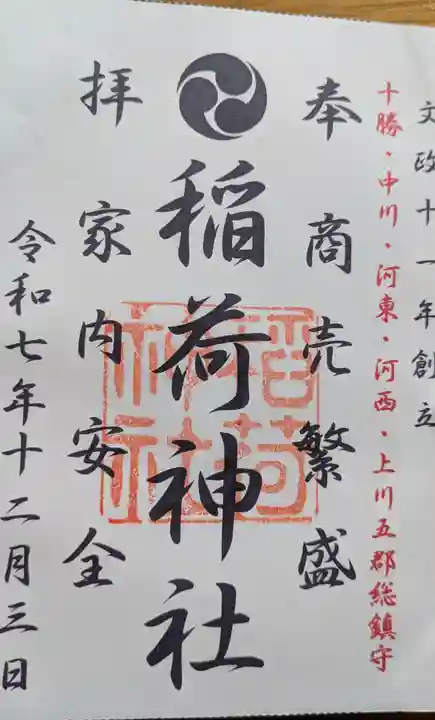 文政十一年創立
十勝・中川・河東・河西・上川五郡総鎮守
奉商売繁盛
稲荷神社
稲荷神社
拝家内安全
令和七年十二月三日